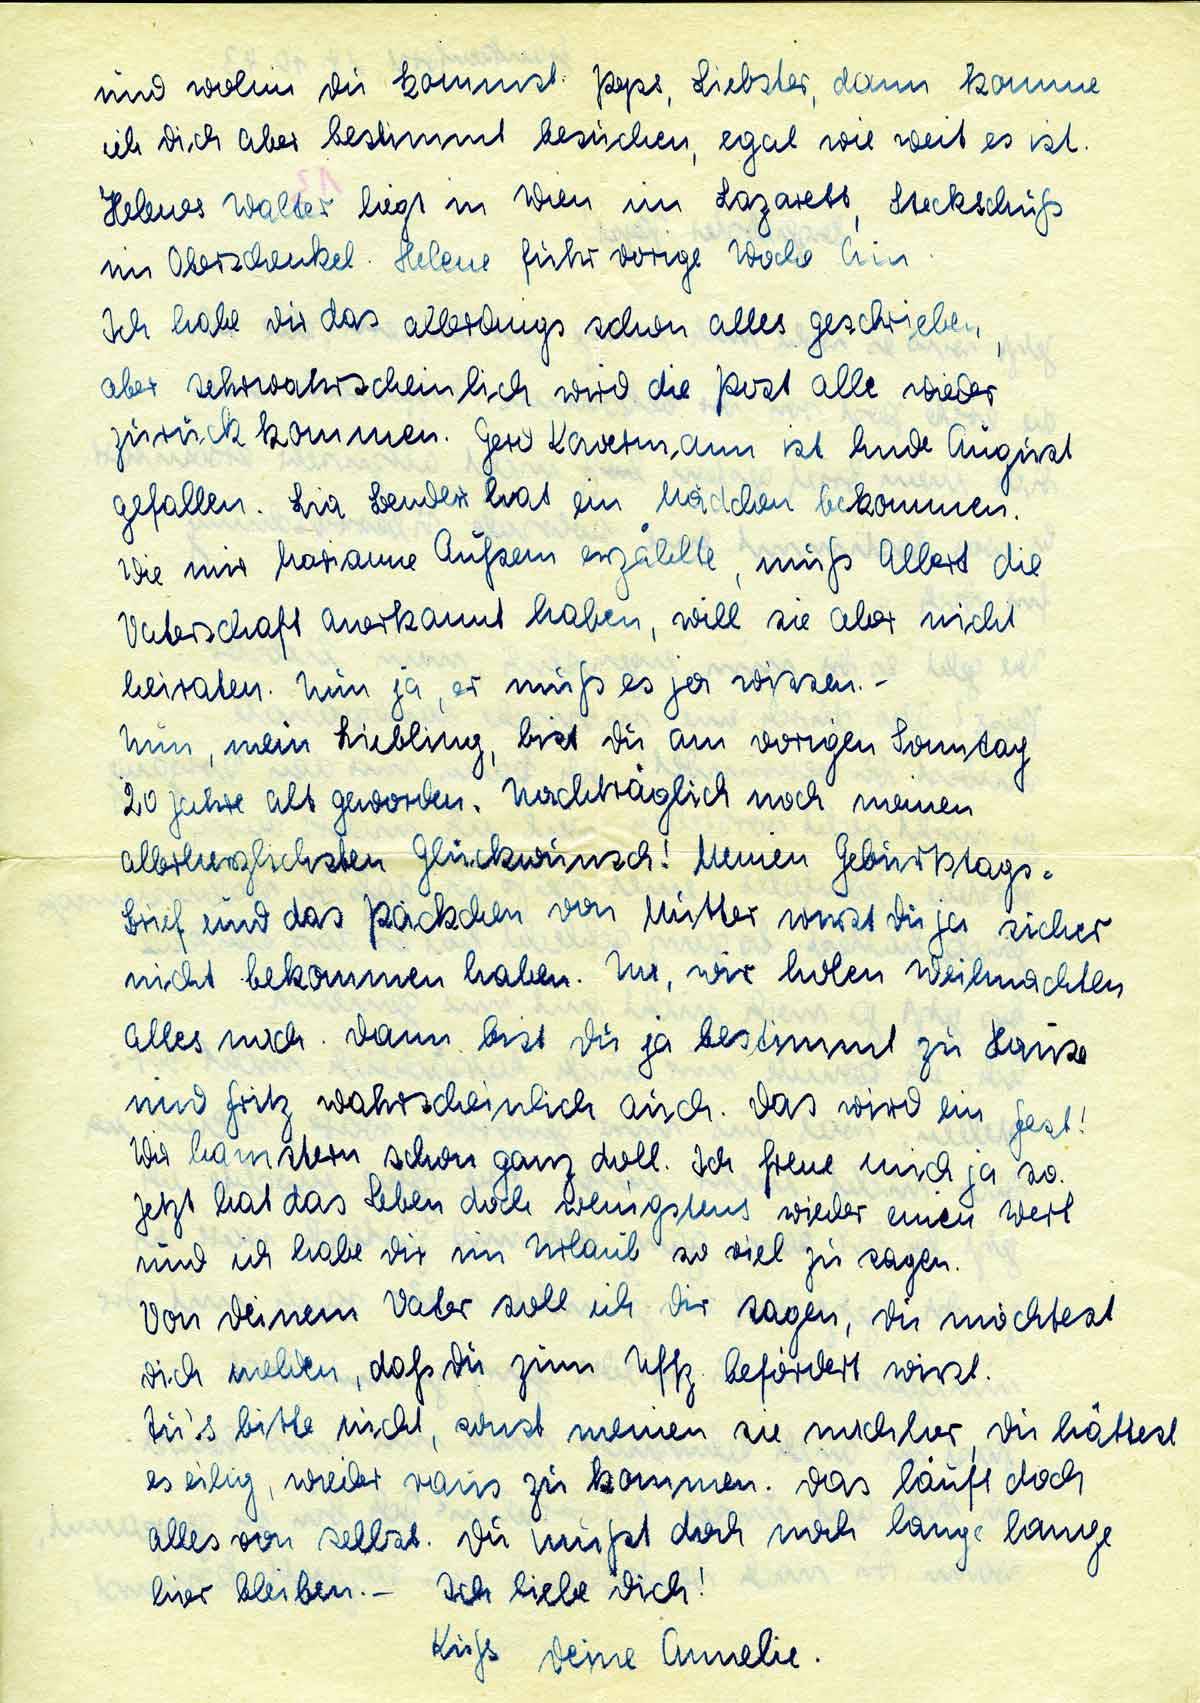 und wohin du kommst. Peps, Liebster, dann komme
ich dich aber bestimmt besuchen, egal wie weit es ist.
Helenes Walter liegt in Wien im Lazarett, Steckschuß
im Oberschenkel. Helene fuhr vorige Woche hin.
Ich habe dir das allerdings schon alles geschrieben,
aber sehrwahrscheinlich wird die Post alle wieder
zurück kommen. Gerd Kavermann ist Ende August
gefallen. Lia Bender hat ein Mädchen bekommen.
Wie mir Marianne Außem erzählte, muß Albert die
Vaterschaft anerkannt haben, will sie aber nicht
heiraten. Nun ja, er muß es ja wissen.-
Nun, mein Liebling, bist du am vorigen Sonntag
20 Jahre alt geworden. Nachträglich noch meinen
allerherzlichsten Glückwunsch! Meinen Geburtstags-
brief und das Päckchen von Mutter wirst du ja sicher
nicht bekommen haben. Na, wir holen Weihnachten
alles nach. Dann bist du ja bestimmt zu Hause
und Fritz wahrscheinlich auch. Das wird ein Fest!
Wir hamstern schon ganz doll. Ich freue mich ja so.
Jetzt hat das Leben doch wenigstens wieder einen Wert
und ich habe dir im Urlaub so viel zu sagen.
Von deinem Vater soll ich dir sagen, du möchtest
dich melden, daß du zum Uffz. befördert wirst.
Tu's bitte nicht, sonst meinen sie nachher, du hättest
es eilig, wieder raus zu kommen. Das läuft doch
alles von selbst. Du mußt doch noch lange lange
hier bleiben.- Ich liebe dich!
Kuß deine Annelie.